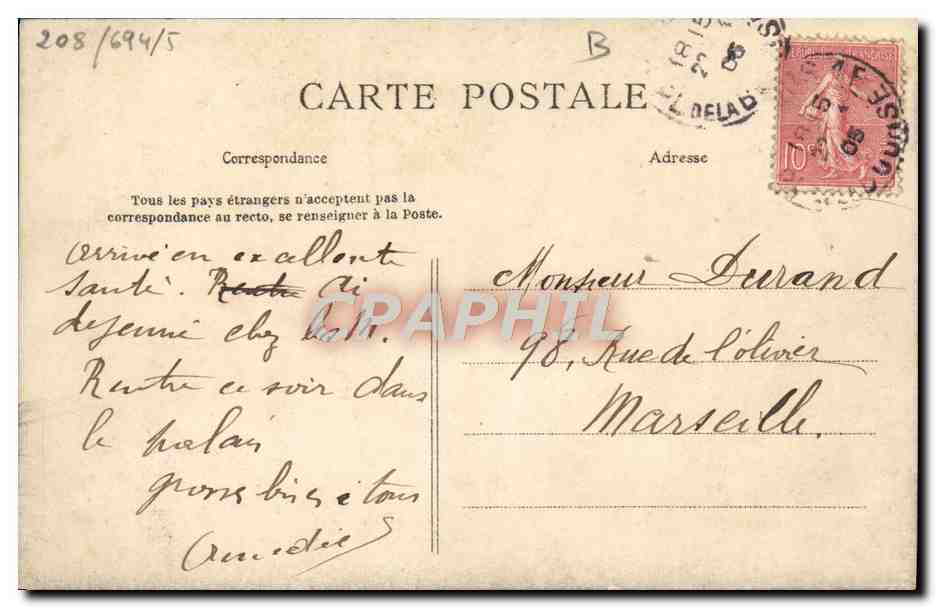 208/694/5
B
CARTE POSTALE
Correspondance
Adresse
Tous les pays étrangers n'acceptent pas la
correspondance au recto, se renseigner à la Poste.
RÉPUBLIQUE FRANÇAISE
10c
18 15
22
05
DE LA B
18 15
22
05
arrivé en excellente
santé. Rentre Ai
dejeunné chez
Rentre ce soir dans
le palais
grosses bises à tous
Amedée
Monsieur Durand
98, Rue de l'olivier
Marseille.
CPAPHIL